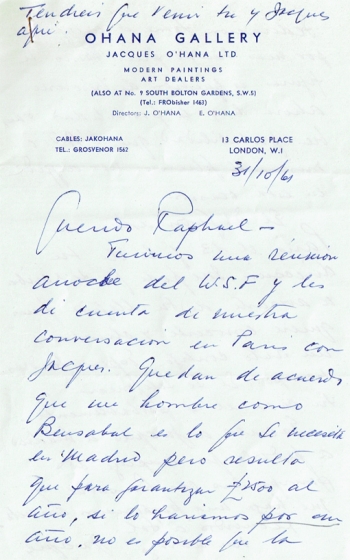 Tendreis que venir tu y Jacques
aqui.
OHANA GALLERY
JACQUES O'HANA LTD.
MODERN PAINTINGS
ART DEALERS
(ALSO AT No. 9 SOUTH BOLTON GARDENS, S.W.5)
(Tel.: FRObisher 1463)
Directors: J. O'HANA E. O'HANA
CABLES: JAKOHANA
TEL.: GROSVENOR 1562
13 CARLOS PLACE
LONDON, W.1
31/10/61
Querido Raphael -
Tuvimos una reunion
anoche del W.S.F y les
di cuenta de nuestra
conversacion en Paris con
Jacques. Quedan de acuerdo
que un hombre como
Bensabat es lo que se necesita
en Madrid pero resulta
que para garantizar £2500 al
año, si lo hacemos por un
año, no es posible que la